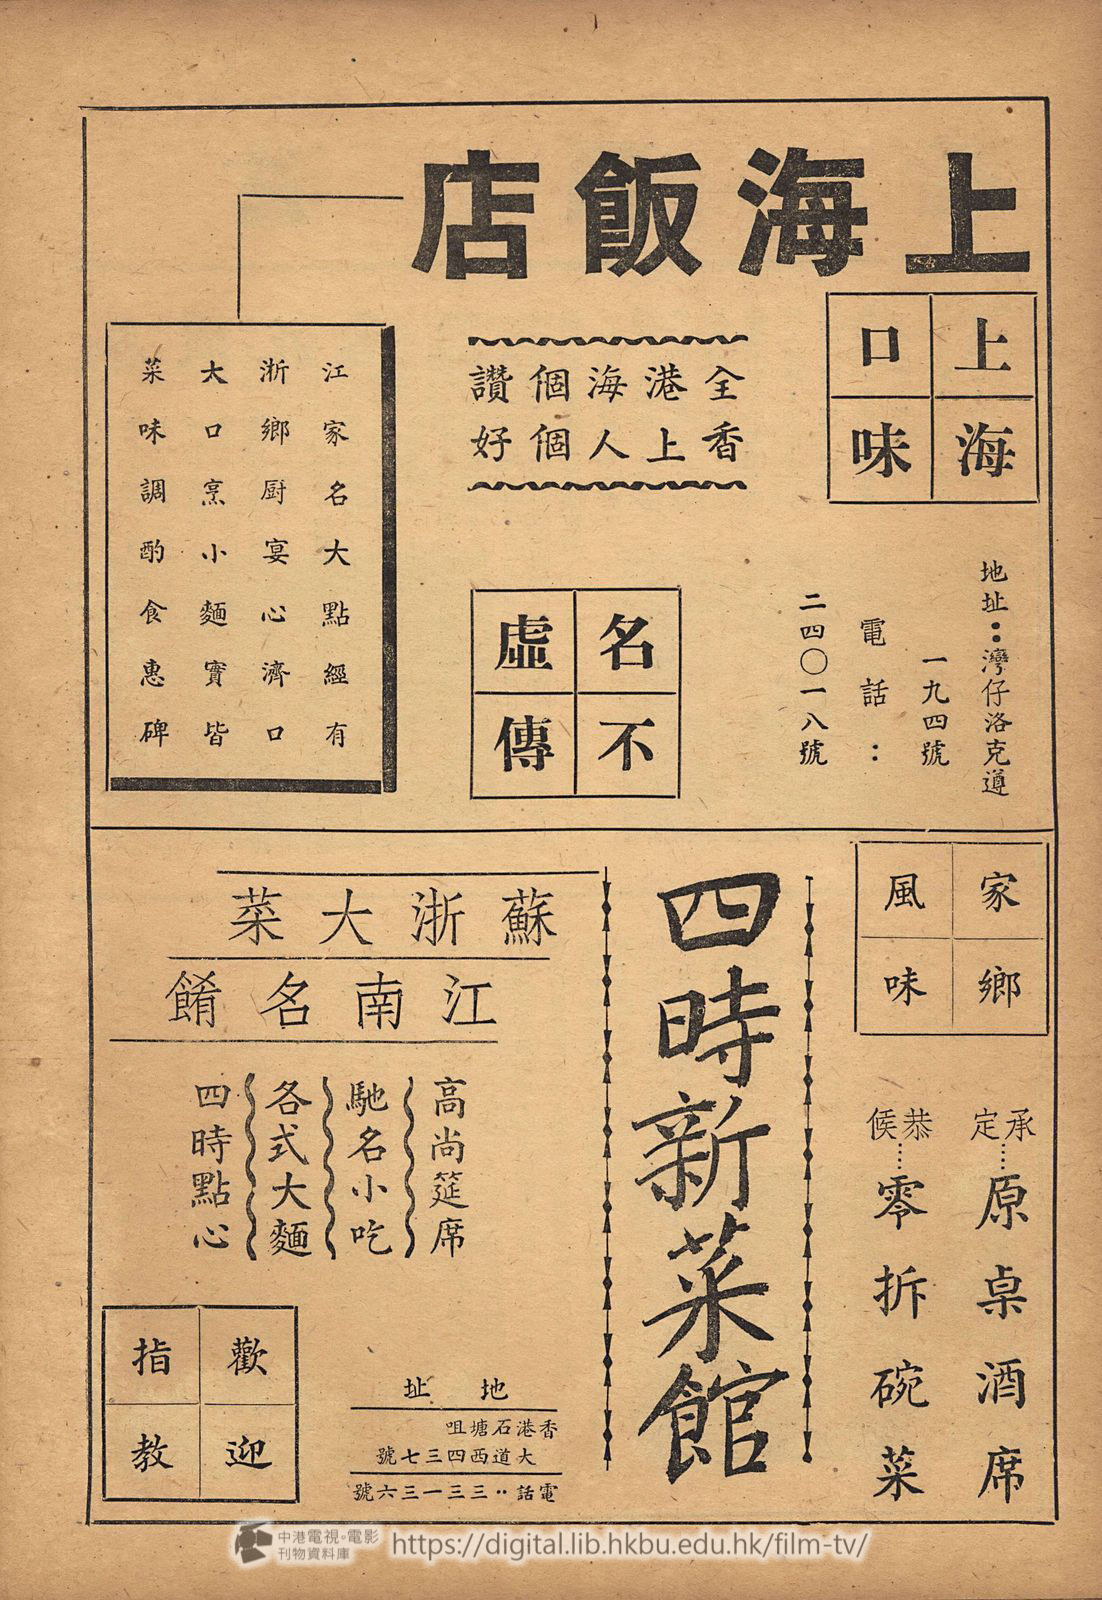 上海飯店
上海
口味
全香
港上
海人
個個
讚好
地址：灣仔洛克道
一九四號
電話：
二四〇一八號
名不
虛傳
江家名大點經有
浙鄉厨宴心濟口
大口烹小麵實皆
菜味調酌食惠碑
家鄉
風味
承定……原桌酒席
恭候……零拆碗菜
四時新菜館
蘇浙大菜
江南名餚
高尚筵席
馳名小吃
各式大麵
四時點心
地址
香港石塘咀
大道西四三七號
電話：三三一三六號
歡迎
指教
中港電視。電影
刊物資料庫
https://digital.lib.hkbu.edu.hk/film-tv/